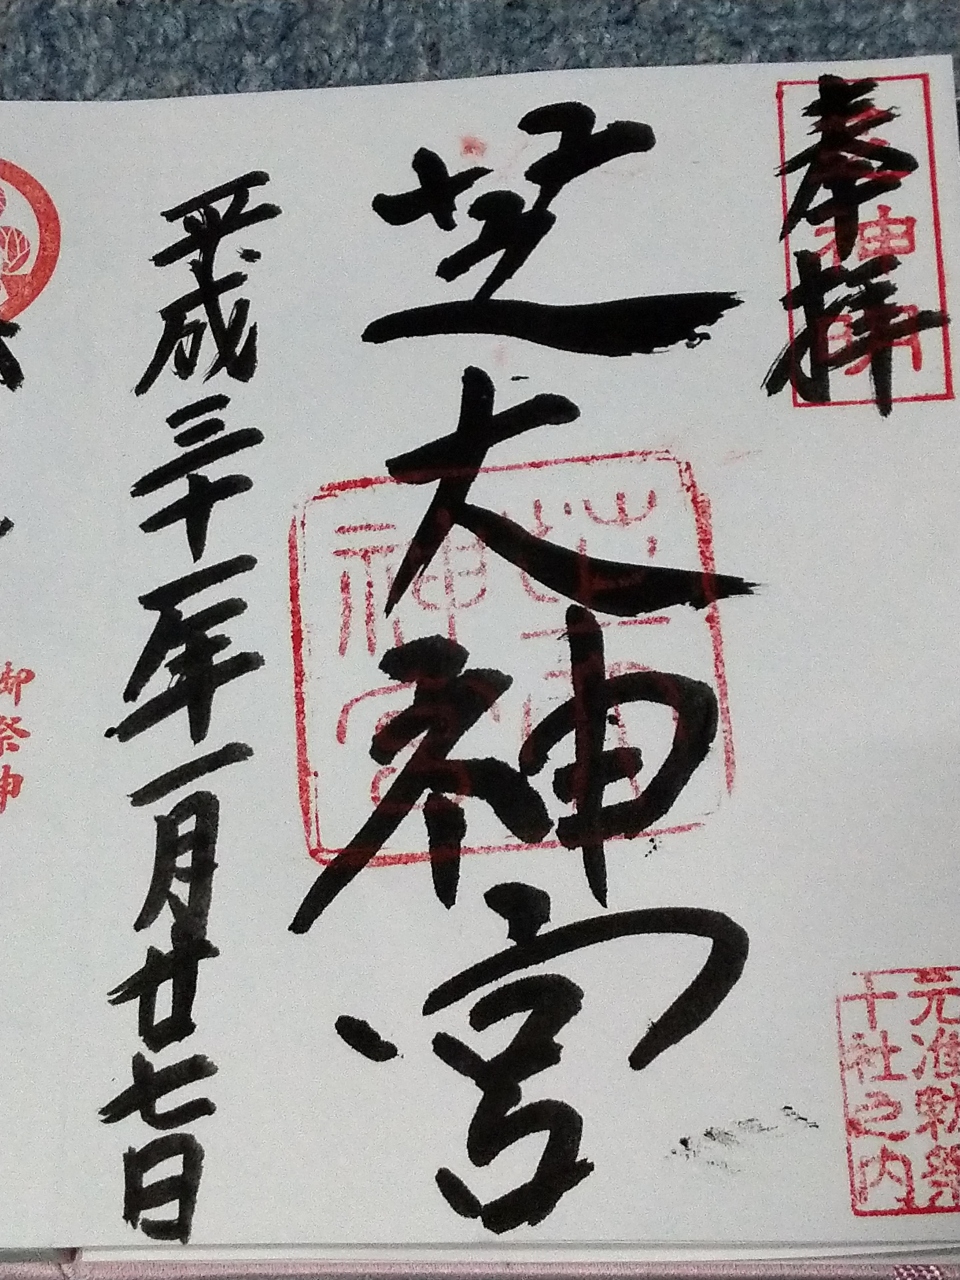 奉拝
神明
元准勅祭
十社之内
芝大神宮
芝大
神宮
平成三十一年一月廿七日
御祭神